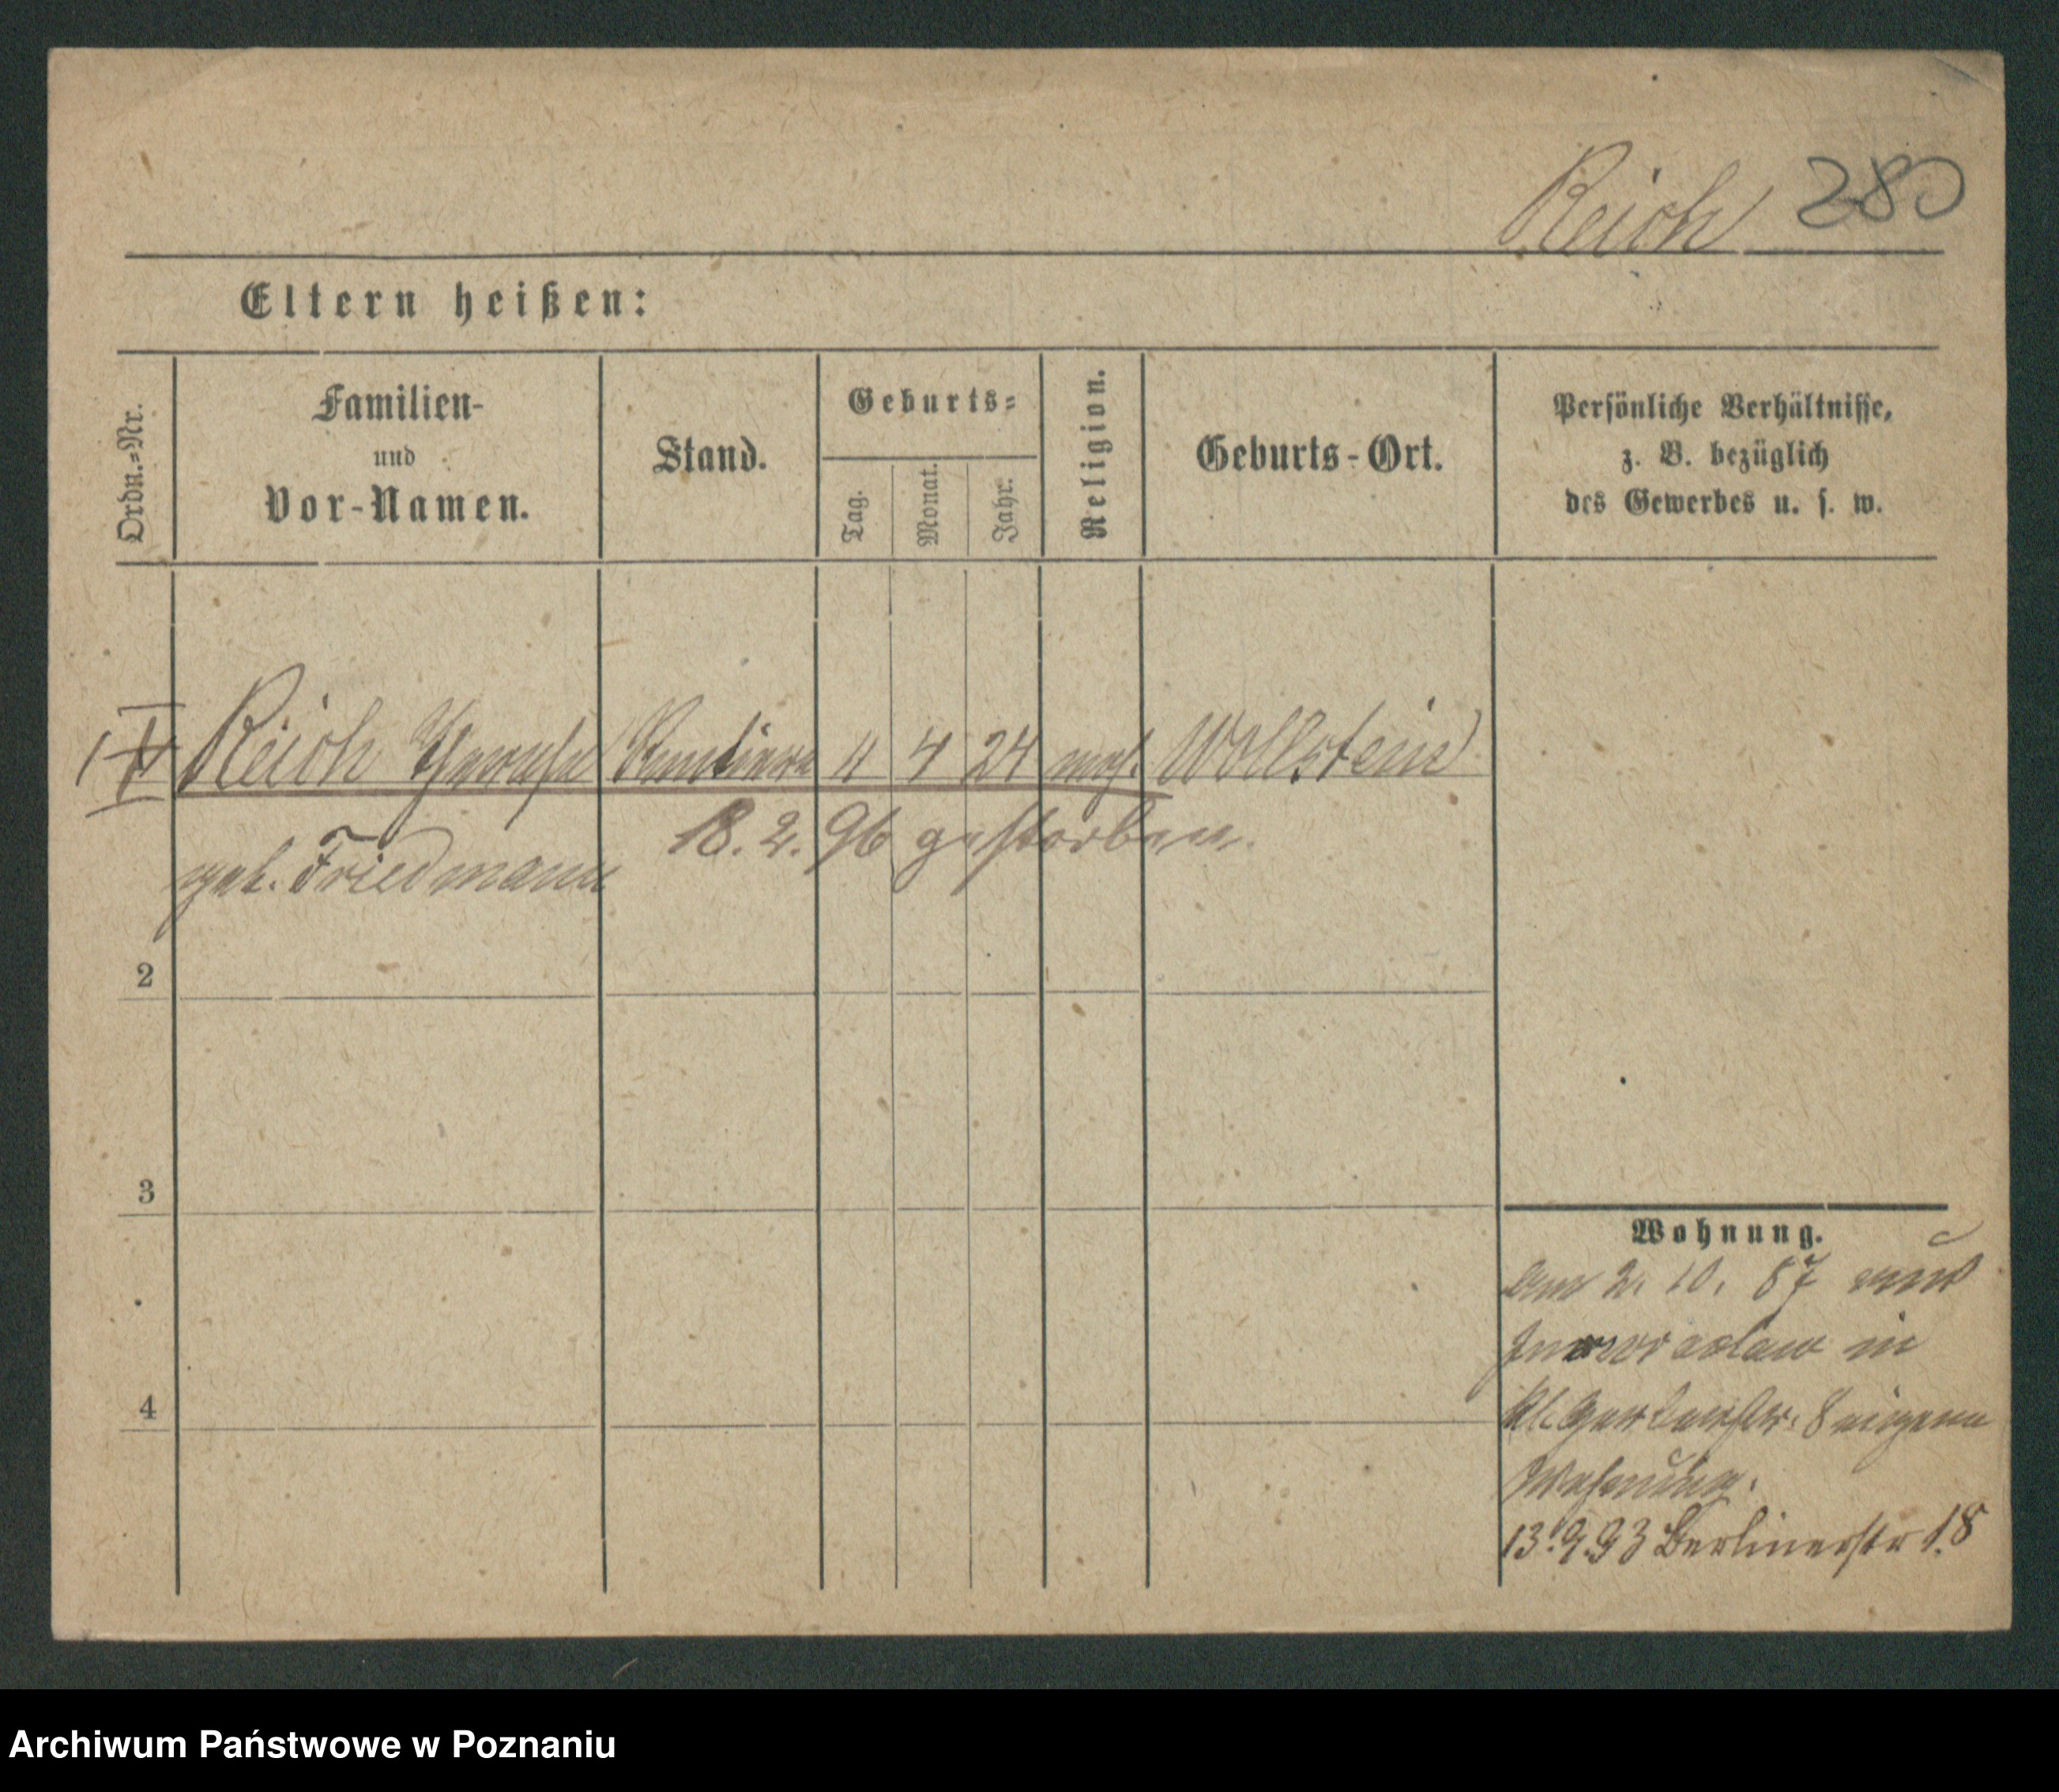 Reich 280
Eltern heißen:
Ordn.=Nr.
Familien-
und
Vor-Namen.
Stand.
Geburts=
Tag.
Monat.
Jahr.
Religion.
Geburts-Ort.
Persönliche Verhältnisse,
z. B. bezüglich
des Gewerbes u. s. w.
1 Reich 11 4 24 mos. Wollstein
geb. Friedmann
18. 2. 96 gestorben.
2
3
4
Wohnung.
am 2. 10. 87 aus
Inowraclaw in
Kl. Gerberstr. 8 eigene
Wohnung.
13.9.93 Berlinerstr 18
Archiwum Państwowe w Poznaniu